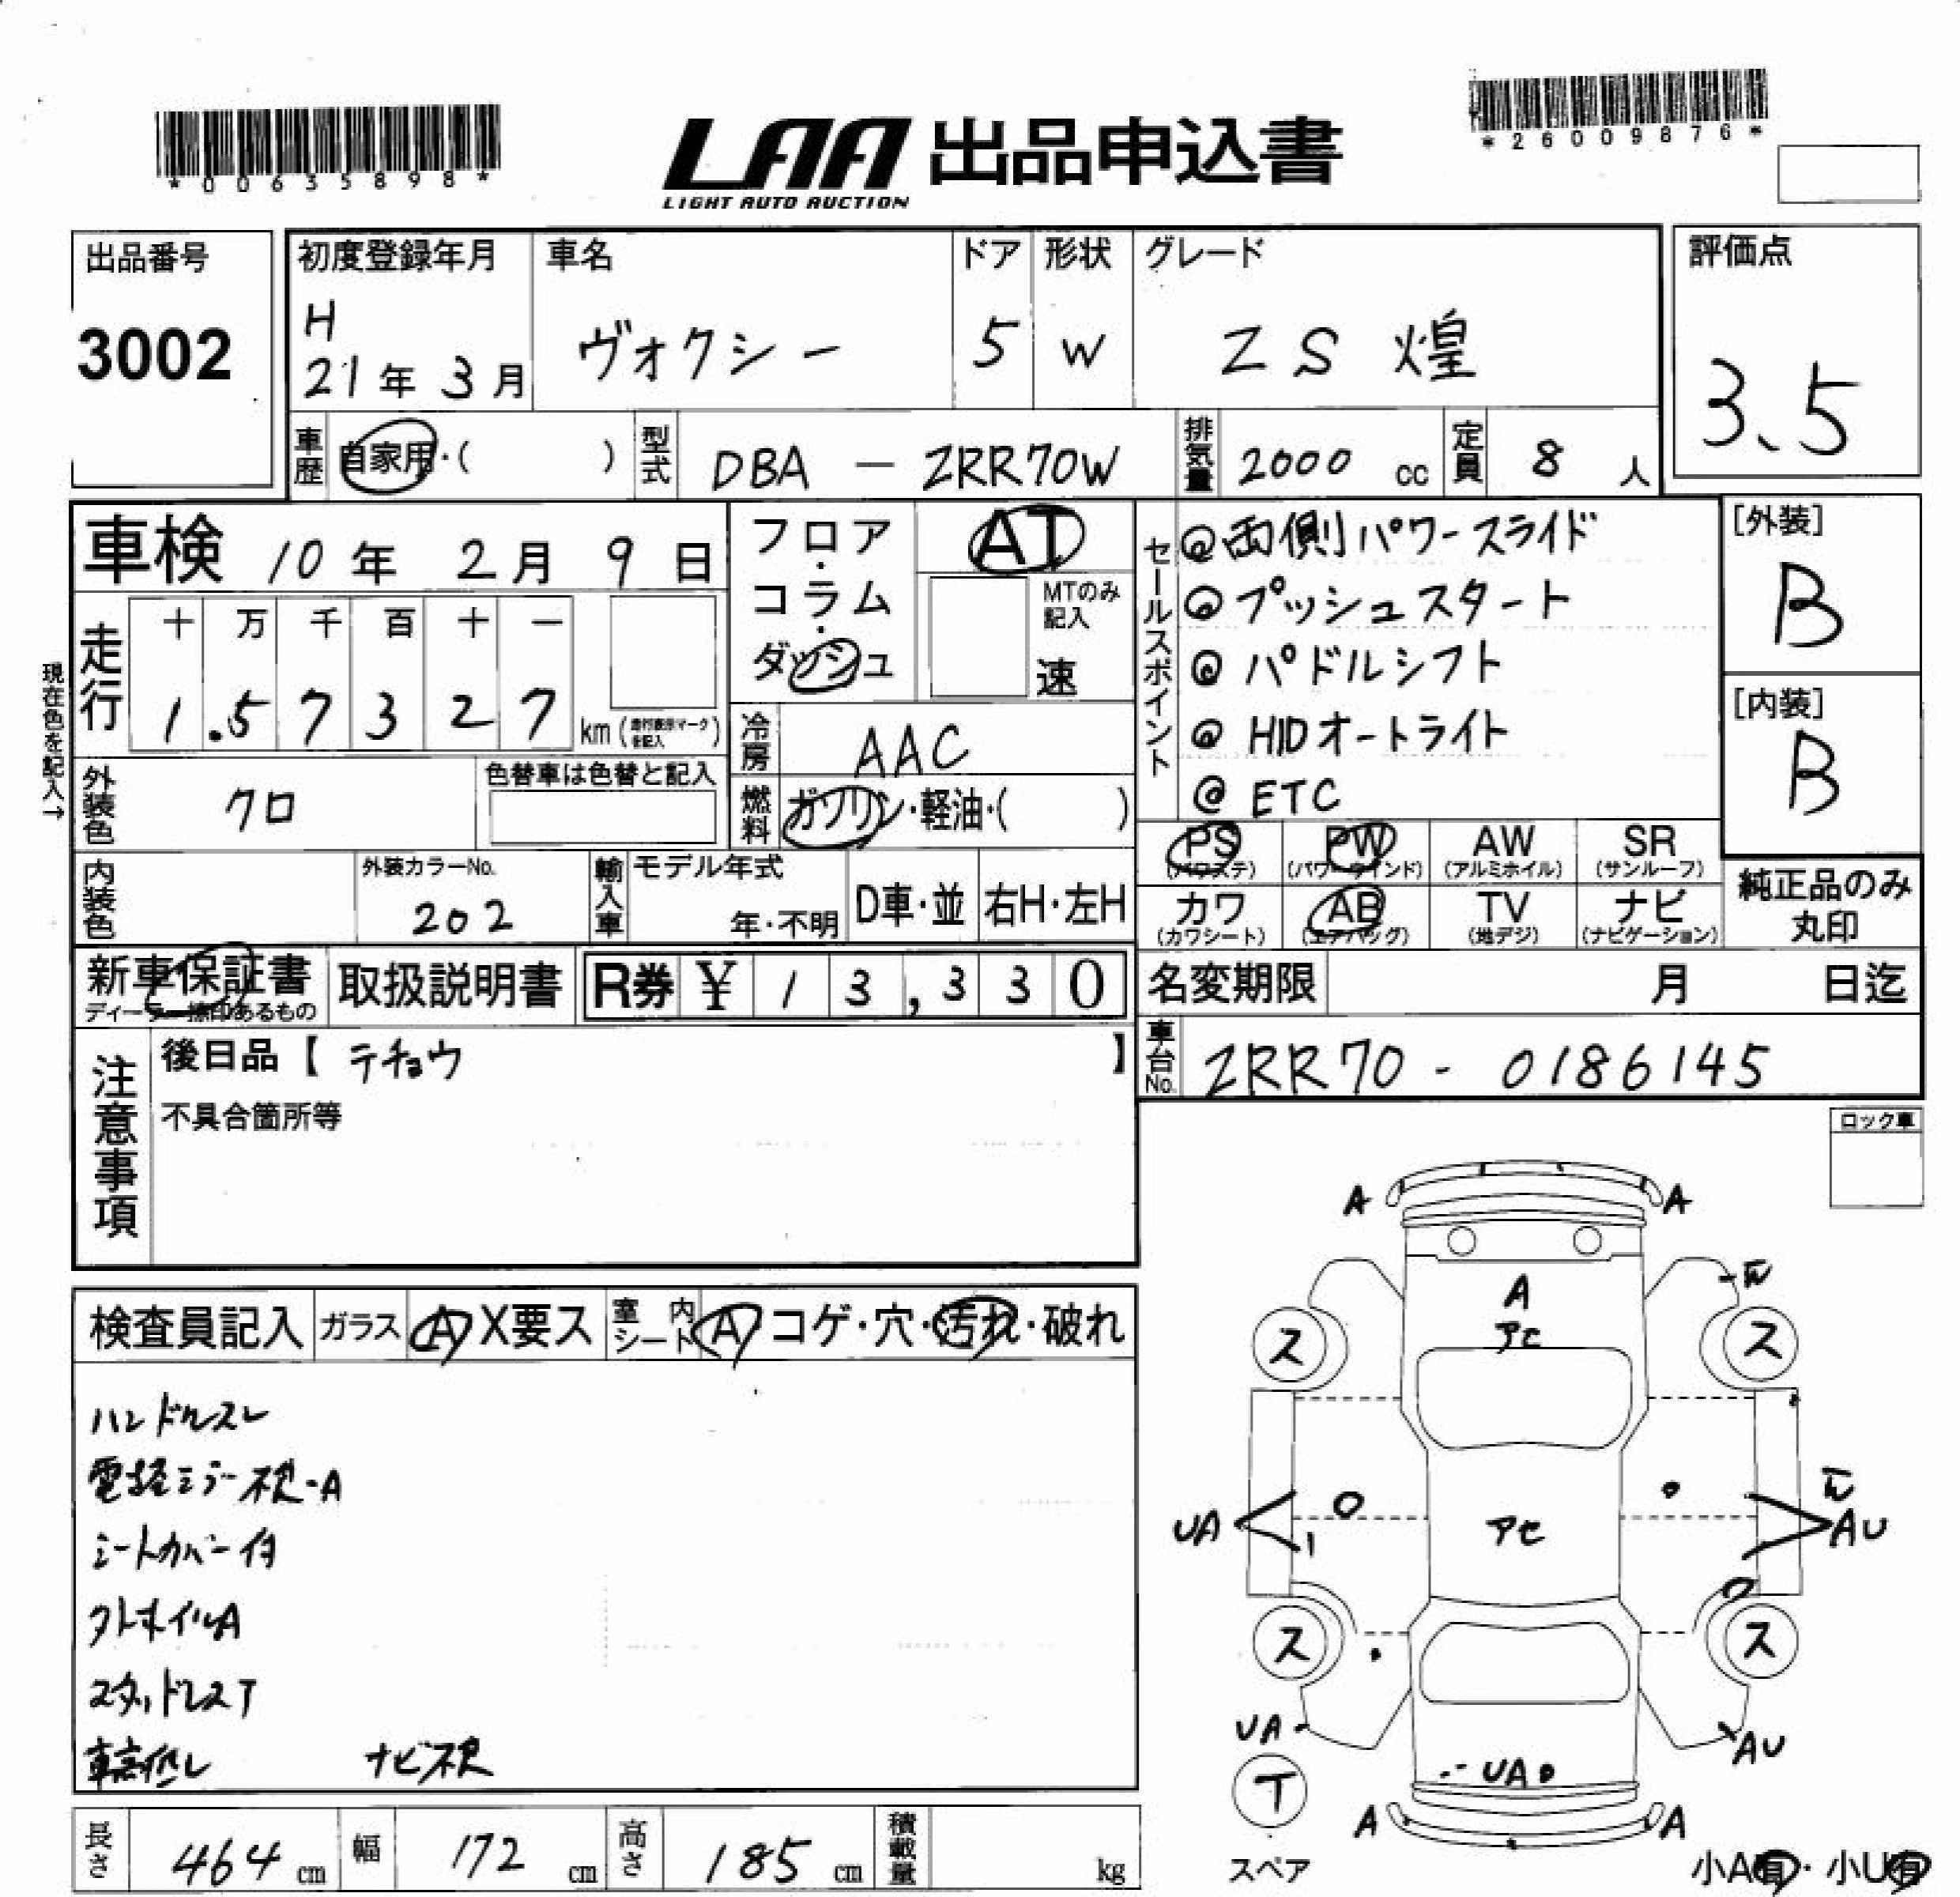 *00635898*
LAA 出品申込書
LIGHT AUTO AUCTION
*26009876*
出品番号
3002
初度登録年月
H
21年 3月
車名
ヴォクシー
ドア
5
形状
W
グレード
ZS 煌
評価点
3.5
車歴 自家用・( )
型式 DBA - ZRR70W
排気量 2000 cc
定員 8 人
車検 10年 2月 9日
フロア・コラム・ダッシュ
AT
MTのみ記入
速
セールスポイント
@両側パワースライド
@プッシュスタート
@パドルシフト
@HIDオートライト
@ETC
[外装]
B
[内装]
B
現在色を記入→
走行
十 万 千 百 十 一
1.5 7 3 2 7 km (走行表示マークを記入)
冷房 AAC
外装色 クロ
色替車は色替と記入
燃料 ガソリン・軽油・( )
PS (パワステ)
PW (パワーウインド)
AW (アルミホイル)
SR (サンルーフ)
カワ (カワシート)
AB (エアバッグ)
TV (地デジ)
ナビ (ナビゲーション)
純正品のみ丸印
内装色
外装カラーNo.
202
輸入車
モデル年式
年・不明
D車・並
右H・左H
新車保証書
ディーラー捺印あるもの
取扱説明書
R券 ¥ 1 3,3 3 0
名変期限 月 日迄
注意事項
後日品【 テチョウ 】
不具合箇所等
車台No. ZRR70 - 0186145
ロック車
検査員記入
ガラス A X要ス
室内シート A コゲ・穴・汚れ・破れ
ハンドルスレ
電格ミラー不良・A
シートカバー付
クトホイルA
スタッドレスT
車高低し ナビ不良
A A
A
アセ
ス ス
UA
アセ
AU
ス ス
UA
AU
UA
T
スペア
A A
小A有・小U有
長さ 464 cm
幅 172 cm
高さ 185 cm
積載量 kg